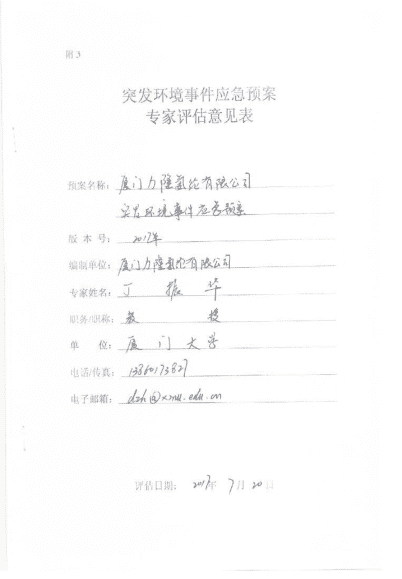 附 3
突发环境事件应急预案
专家评估意见表
预案名称: 厦门力隆氨纶有限公司
突发环境事件应急预案
版 本 号: 2017年
编制单位: 厦门力隆氨纶有限公司
专家姓名: 丁 振 华
职务/职称: 教 授
单 位: 厦 门 大 学
电话/传真:
电子邮箱: dzh@xmu.edu.cn
评估日期: 2017年 7月20日